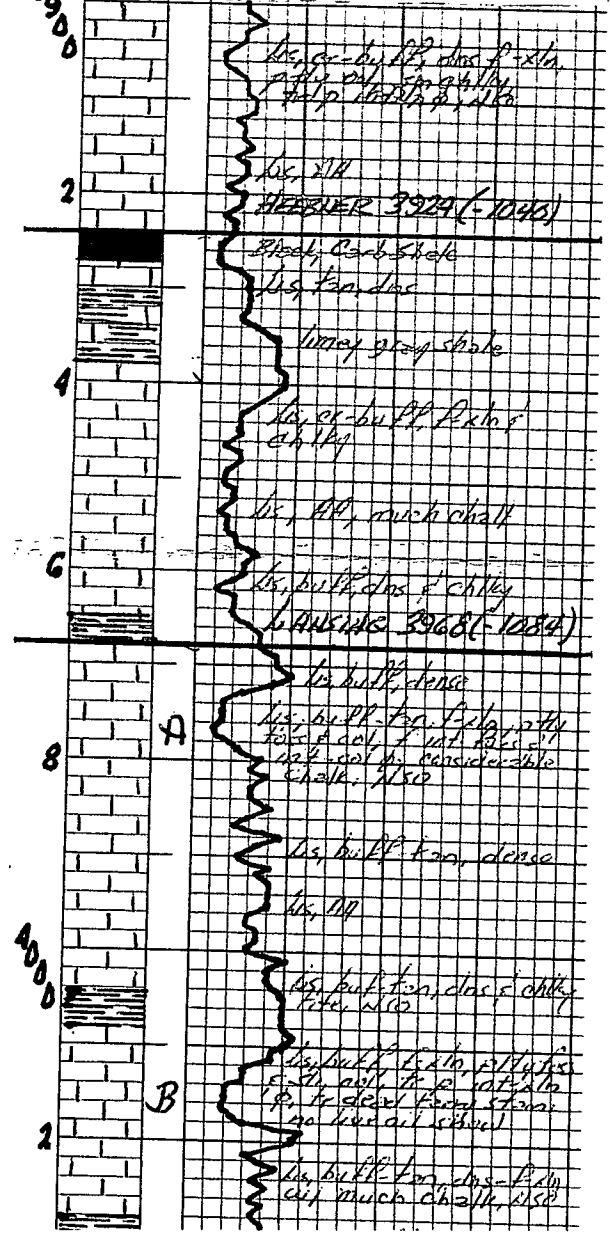 3900
Ls, cr-buff, dns f-xln,
ptly ool, sm chlky
NSO
Ls, AA
2
HEEBNER 3924 (-1040)
Black, Carb shale
Ls, tan, dns
limey gray shale
4
Ls, cr-buff, f-xln &
chlky
Ls, AA, much chalk
6
Ls, buff, dns & chlky
LANSING 3968 (-1084)
Ls, buff, dense
A
Ls, buff-tan, f-xln, ptly
foss & ool, f int foss &
int-ool φ, considerable
chalk, NSO
8
Ls, buff-tan, dense
Ls, AA
4000
Ls, buf-tan, dns & chlky
tite, NSO
Ls, buff f-xln, ptly foss
& sli ool, tr f int xln
B
φ, tr dead tarry stain,
no live oil show
2
Ls, buff-tan, dns-f-xln
w/ much chalk, NSO